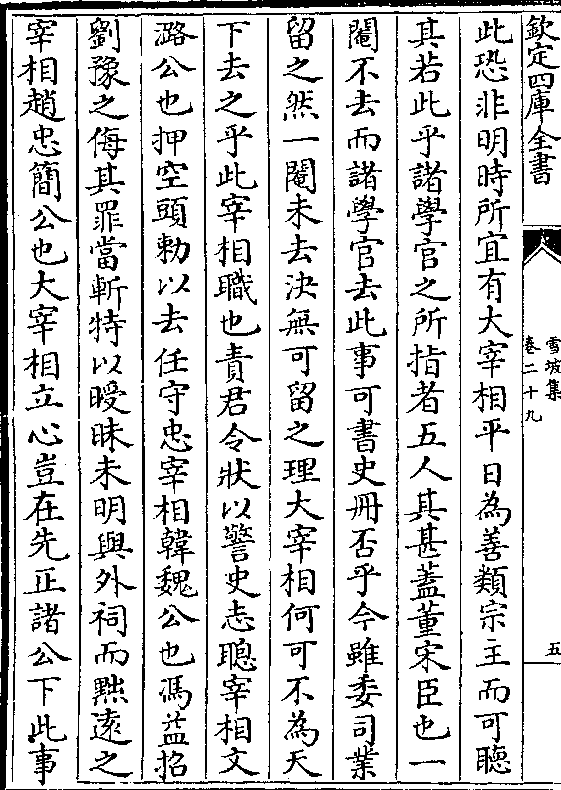 欽定四庫全書
雪坡集
卷二十九
五
此恐非明時所宜有大宰相平日為善類宗主而可聽
其若此乎諸學官之所指者五人其甚蓋董宋臣也一
閹不去而諸學官去此事可書史冊否乎今雖委司業
留之然一閹未去決無可留之理大宰相何可不為天
下去之乎此宰相職也責君令狀以警史志聰宰相文
潞公也押空頭勅以去任守忠宰相韓魏公也馮益招
劉豫之侮其罪當斬特以曖昧未明與外祠而黜遠之
宰相趙忠簡公也大宰相立心豈在先正諸公下此事